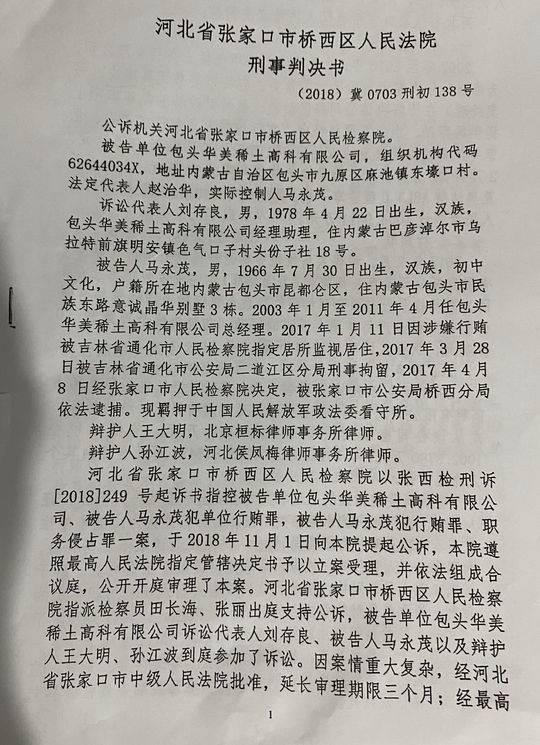 河北省张家口市桥西区人民法院
刑事判决书
（2018）冀 0703 刑初 138 号
公诉机关河北省张家口市桥西区人民检察院。
被告单位包头华美稀土高科有限公司，组织机构代码
62644034X，地址内蒙古自治区包头市九原区麻池镇东壕口村。
法定代表人赵治华，实际控制人马永茂。
诉讼代表人刘存良，男，1978 年 4 月 22 日出生，汉族，
包头华美稀土高科有限公司经理助理，住内蒙古巴彦淖尔市乌
拉特前旗明安镇色气口子村头份子社 18 号。
被告人马永茂，男，1966 年 7 月 30 日出生，汉族，初中
文化，户籍所在地内蒙古包头市昆都仑区，住内蒙古包头市民
族东路意诚晶华别墅 3 栋。2003 年 1 月至 2011 年 4 月任包头
华美稀土高科有限公司总经理。2017 年 1 月 11 日因涉嫌行贿
被吉林省通化市人民检察院指定居所监视居住，2017 年 3 月 28
日被吉林省通化市公安局二道江区分局刑事拘留，2017 年 4 月
8 日经张家口市人民检察院决定，被张家口市公安局桥西分局
依法逮捕。现羁押于中国人民解放军政法委看守所。
辩护人王大明，北京桓标律师事务所律师。
辩护人孙江波，河北侯凤梅律师事务所律师。
河北省张家口市桥西区人民检察院以张西检刑诉
[2018]249 号起诉书指控被告单位包头华美稀土高科有限公
司、被告人马永茂犯单位行贿罪，被告人马永茂犯行贿罪、职
务侵占罪一案，于 2018 年 11 月 1 日向本院提起公诉，本院遵
照最高人民法院指定管辖决定书予以立案受理，并依法组成合
议庭，公开开庭审理了本案。河北省张家口市桥西区人民检察
院指派检察员田长海、张丽出庭支持公诉，被告单位包头华美
稀土高科有限公司诉讼代表人刘存良、被告人马永茂以及辩护
人王大明、孙江波到庭参加了诉讼。因案情重大复杂，经河北
省张家口市中级人民法院批准，延长审理期限三个月；经最高
1